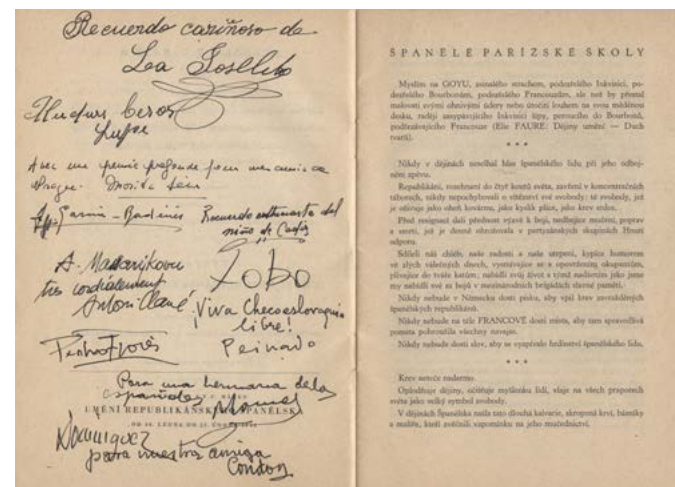 Recuerdo cariñoso de
Muchos besos
Lupe
Recuerdo entusiasta del
niño de Cadiz
Lobo
très cordialement
Antoni Clavé
¡Viva Checoeslovaquia
libre!
Peinado
Pedro Flores
Para una hermana de los
españoles
UMĚNÍ REPUBLIKÁNSKÉHO ŠPANĚLSKA
Dominguez
para nuestra amiga
Condoy
ŠPANĚLÉ PAŘÍŽSKÉ ŠKOLY
Myslím na GOYU, zsinalého strachem, podezřelého Inkvisici, po-
dezřelého Bourbonům, podezřelého Francouzům, ale než by přestal
malovati svými ohnivými údery nebo útočiti louhem na svou měděnou
desku, raději
podřezávajícího Francouze (Elie FAURE: Dějiny umění — Duch
tvarů).
* * *
Nikdy v dějinách neselhal hlas španělského lidu při jeho odboj-
ném zpěvu.
Republikáni, rozehnaní do čtyř koutů světa, zavření v koncentračních
táborech, nikdy nepochybovali o vítězství své svobody: té svobody, jež
je oživuje jako oheň kovárnu, jako kyslík plíce, jako krev srdce.
Před resignací dali přednost výzvě k boji, nedbajíce mučení, poprav
a smrti, jež je denně ohrožovala v partyzánských skupinách Hnutí
odporu.
Sdíleli náš chléb, naše radosti a naše utrpení, kypíce humorem
ve zlých válečných dnech, vysmívajíce se a opovrhujíce okupantům,
plivajíce do tváře katům; nabídli svůj život s týmž nadšením jako jsme
my nabídli své za bojů v mezinárodních brigádách slavné paměti.
Nikdy nebude v Německu dosti písku, aby vpil krev zavražděných
španělských republikánů.
Nikdy nebude na těle FRANCOVĚ dosti místa, aby tam spravedlivá
pomsta pohroužila všechny
Nikdy nebude dosti slov, aby se vyzpívalo hrdinství španělského lidu.
* * *
Krev neteče nadarmo.
Oplodňuje dějiny, očišťuje myšlenku lidí, vlaje na všech praporech
světa jako velký symbol svobody.
V dějinách Španělska našla tato dlouhá kalvarie, skropená krví, básníky
a malíře, kteří zvěčnili vzpomínku na jeho mučednictví.